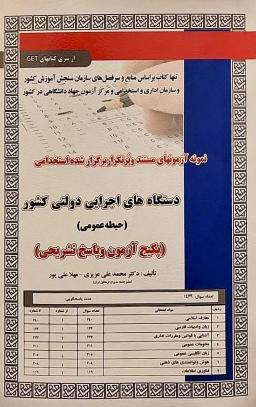 از سری کتابهای GET
تنها کتاب براساس منابع و سرفصل‌های سازمان سنجش آموزش کشور
و سازمان اداری و استخدامی و مرکز آزمون جهاد دانشگاهی در کشور
نمونه آزمونهای مستند و پرتکرار برگزار شده استخدامی
دستگاه های اجرایی دولتی کشور
(حیطه عمومی)
(پکیج آزمون و پاسخ تشریحی)
تألیف: دکتر محمد علی عزیزی - مهلا علی پور
تعداد سوال: ۱۴۳۹
ردیف مواد امتحانی تعداد سوال از شماره تا شماره
۱ معارف اسلامی
۲ زبان و ادبیات فارسی
۳ آشنایی با قوانین و مقررات اداری
۴ معلومات عمومی
۵ زبان انگلیسی عمومی
۶ هوش و توانمندی های ذهنی
۷ فناوری اطلاعات